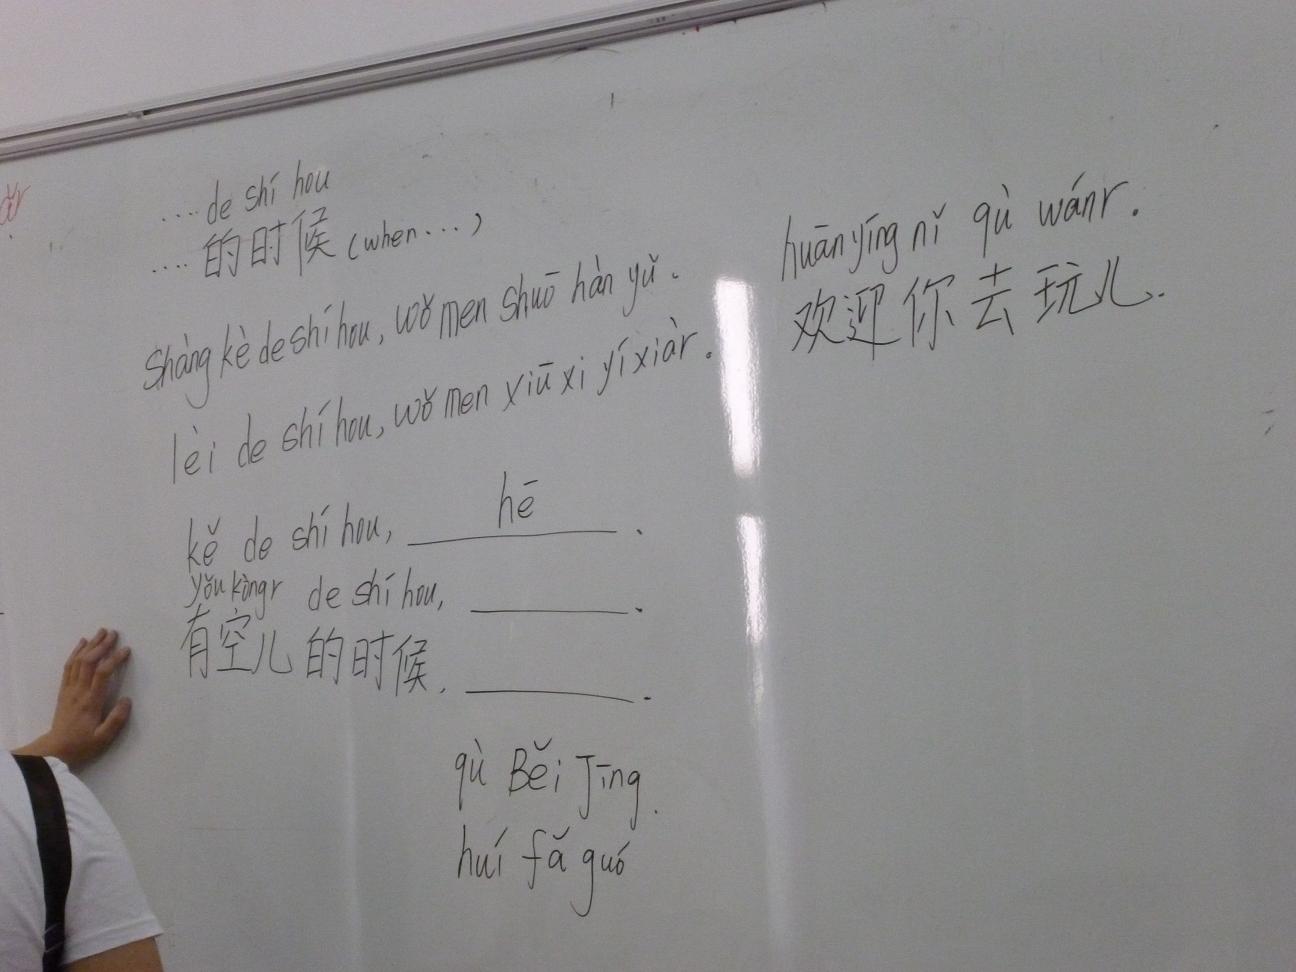 .... de shí hou
.... 的时候 (when...)
shàng kè de shí hou, wǒ men shuō hàn yǔ.
lèi de shí hou, wǒ men xiū xi yí xiàr.
kě de shí hou, hē .
yǒu kòngr de shí hou, .
有空儿的时候, .
qù Běi Jīng.
huí fǎ guó
huān yíng nǐ qù wánr.
欢迎你去玩儿.